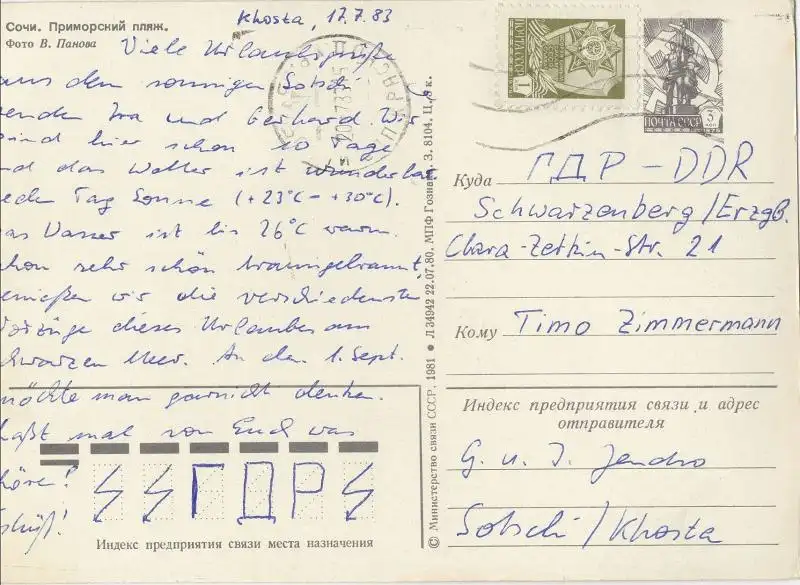 Khosta, 17.7.83
Сочи. Приморский пляж.
Фото В. Панова
Viele Urlaubsgrüße
aus dem sonnigen Sotschi
enden Ira und Gerhard. Wir
ind hier schon 10 Tage
nd das Wetter ist wunderbar.
eden Tag Sonne (+23°C – +30°C).
as Wasser ist bis 26°C warm.
chon sehr schön braungebrannt,
enießen wir die verschiedensten
Vorzüge dieses Urlaubes am
chwarzen Meer. An den 1. Sept.
möchte man garnicht denken.
aßt mal von Euch was
höre!
schüß!
ГДР
Индекс предприятия связи места назначения
© Министерство связи СССР, 1981 ● Л 34942 22.07.80. МПФ Гознака. З. 8104. Ц. 9 к.
ПОЧТА СССР
1
ПОЧТА СССР
3 коп
Куда ГДР – DDR
Schwarzenberg/Erzgb.
Clara-Zetkin-Str. 21
Кому Timo Zimmermann
Индекс предприятия связи и адрес
отправителя
G. u. I. Jendro
Sotschi/Khosta